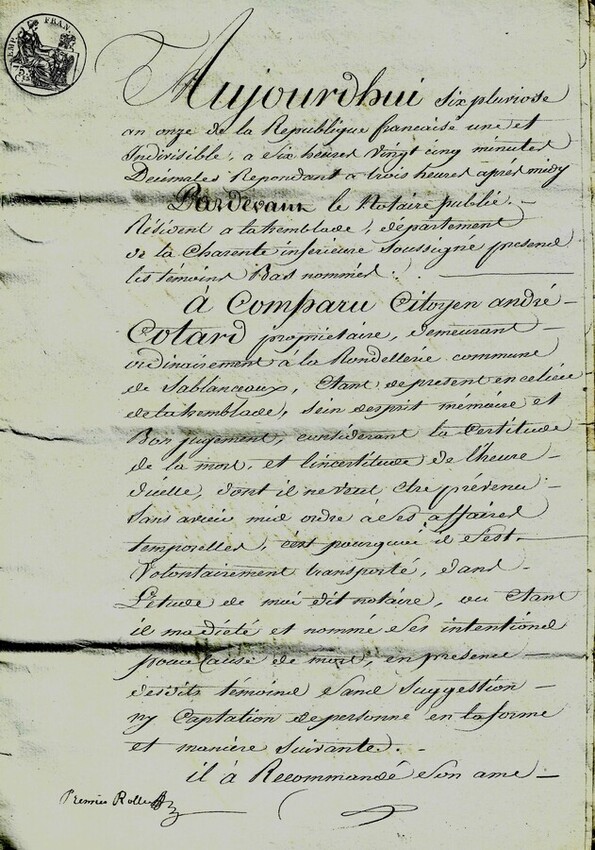 TIMP. FRAN.
Aujourdhui six pluviose
an onze de la Republique francaise une et
Indivisible, a six heures vingt cinq minutes
Decimales Repondant a trois heures après midy
Pardevant le Notaire publié.
Résident a latremblade, département
de la Charente inférieure Soussigné présend
les témoins Bas nommés.
à Comparu Citoyen andré
Cotard propriétaire, demeurant
ordinairement à la Rondellerie commune
de Sablanceaux, étant de présent en celieu
de latremblade, sein desprit mémoire et
Bon jugement, considérant la Certitude
de la mort, et l'incertitude de l'heure
dicelle, dont il ne veut être prévenu
sans avoir mis ordre à Ses affaires
temporelles, c'est pourquoi il s'est
Volontairement transporté, dans
L'etude de moi dit notaire, ou étant
il ma dicté et nommé ses intentions
pour cause de mort, en présence
desdits témoins sans Suggestion
ny Captation de personne en la forme
et manière suivante.
il à Recommandé Son ame
Premier Rolle